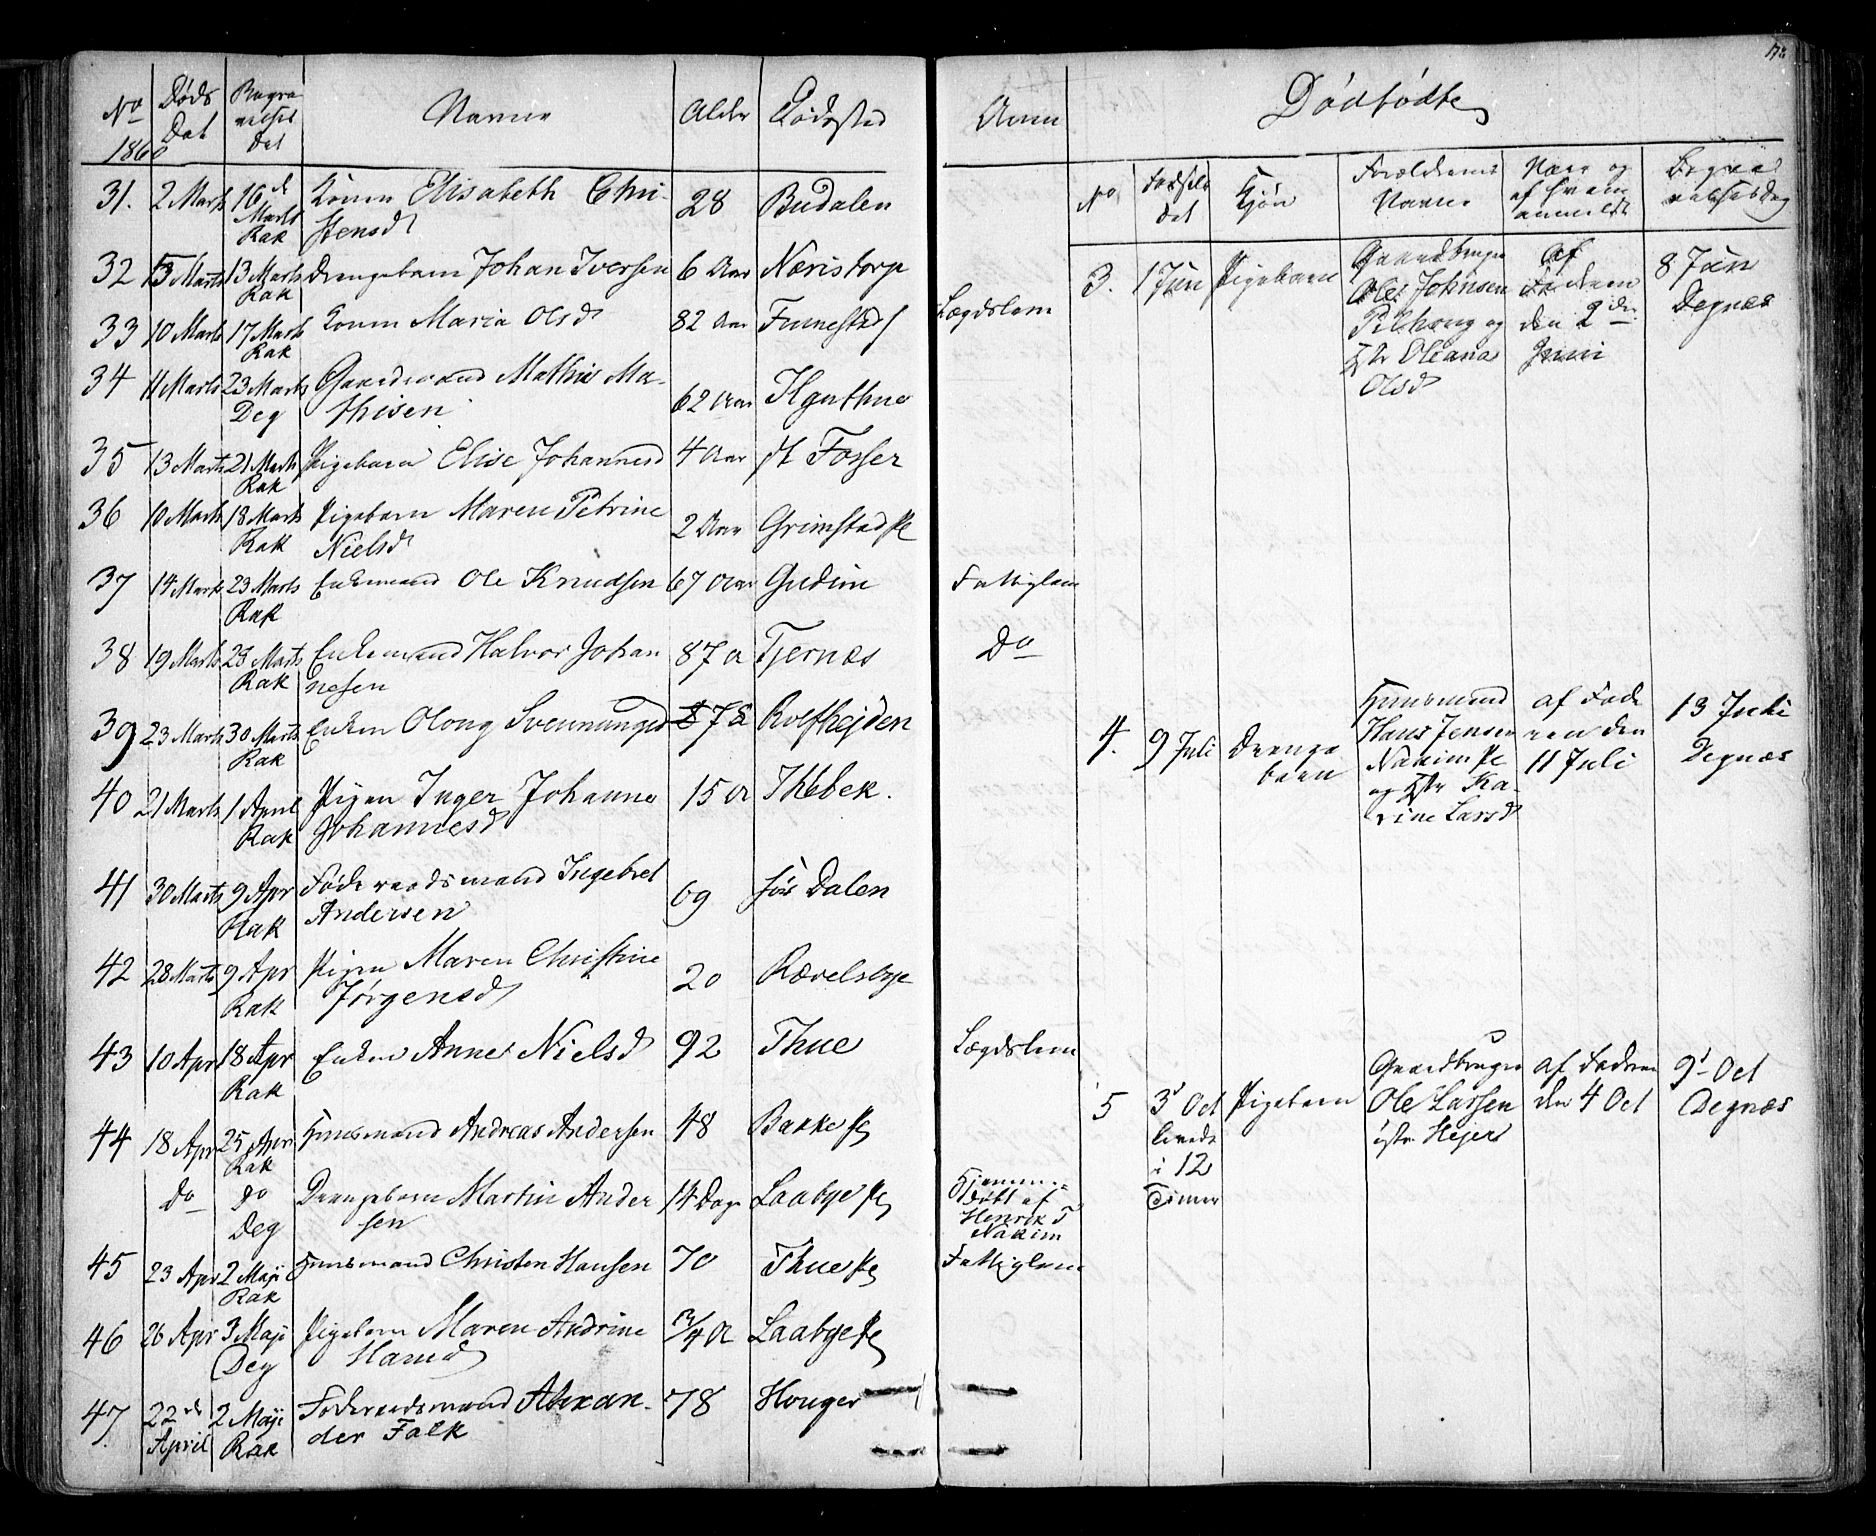 No Døds Dat Begravelses Dat Navne Alder Dødssted Anm
1860
31. 2 Marts 16de Marts Rak Konen Elisabeth Christensd 28 Budalen
32 13 Marts Rak Drengebarn Johan Iversen 6 Aar Næristorp
33 10 Marts 17 Marts Rak Konen Maria Olsd 82 Aar Funnestad Lægdslem
34 11 Marts 23 Marts Deg Gaardmand Mathis Mathisen 62 Aar
35 13 Marts 21 Marts Rak Pigebarn Elise Johannesd 4 Aar Fosser
36 10 Marts 18 Marts Rak Pigebarn Maren Petrine Nielsd 2 Aar Grimstad Pl
37 14 Marts 23 Marts Rak Enkemand Ole Knudsen 67 Aar Gudim Fattiglem
38 19 Marts 23 Marts Rak Enkemand Halvor Johannesen 87 A Tjernæs Do
39 23 Marts 30 Marts Rak Enken Olong Svenningsd Rolfhejden
40 21 Marts 1 April Rak Pigen Inger Johanne Johannesd 15 A Thebek.
41 30 Marts 9 Apr Rak Føderaadsmand Ingebret Andersen 69 Dalen
42 28 Marts 9 Apr Rak Pigen Maren Christine Jørgensd 20 Rævelsbye
43 10 Apr 18 Apr Rak Enken Anne Nielsd 92 Thue Lægdslem
44 18 Apr 25 Apr Rak Huusmand Andreas Andersen 48 Bakke Pl
Do Do Deg Drengebarn Martin Andersen 14 Dage Laabye Pl Hjemmedøbt af Henrik T Nakim
45 23 Apr 2 Maji Rak Huusmand Christen Hansen 70 Thue Pl Fattiglem
46 26 Apr 3 Maji Deg Pigebarn Maren Andrine Hansd Laabye Pl
47. 22de April 2 Maji Rak Føderaadsmand Alexander Falk 78 Houger
Dødfødte
No Fødsels dat Kjøn Forældrenes Navne Naar og af hvem anmeldt Begravelsesdag
3. 1 Jun Pigebarn Gaardbruger Ole Johnsen og Hstr Oleana Olsd af Faderen den 2den Juni 8 Jun Degnæs
4. 9 Juli Drengebarn Huusmand Hans Jensen Nakim Pl og Hstr Karine Larsd af Faderen den 11 Juli 13 Juli Degnæs
5 3 Oct levede i 12 Timer Pigebarn Gaardbruger Ole Larsen østr Hejer af Faderen den 4 Oct 9 Oct Degnæs